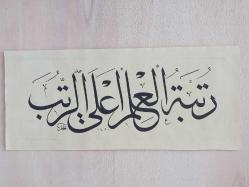 رُتبَةُ العِلمِ أَعلَى الرُّتَب